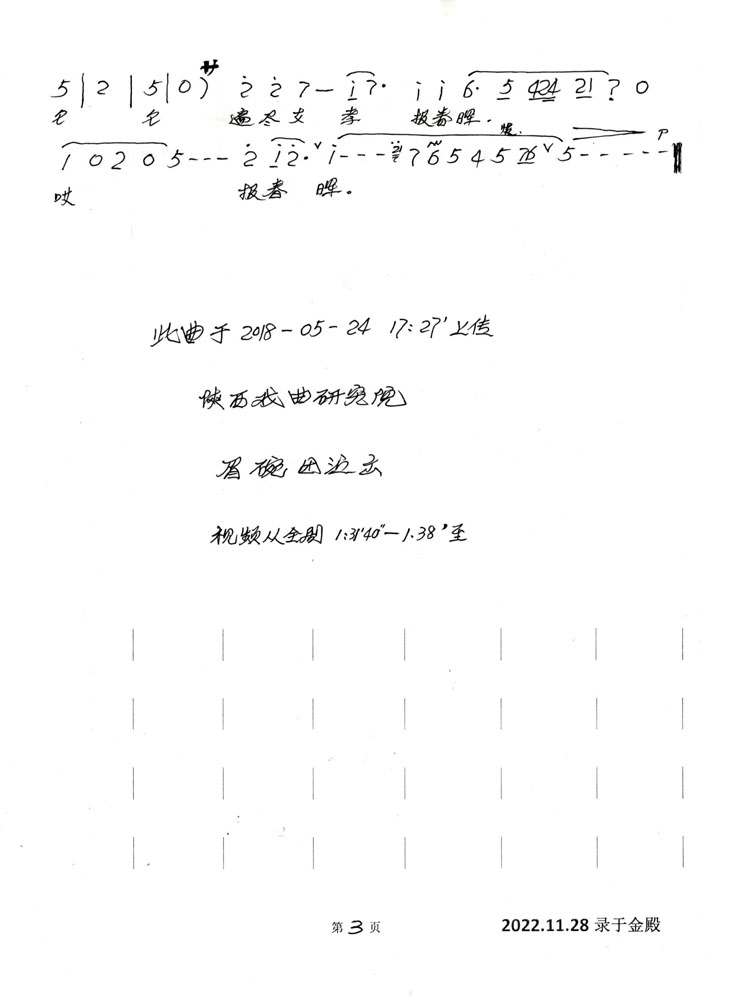 5 | 2 | 5 | 0 ) サ 2̇ 2̇ 7 — i̇ 7· i̇ i̇ 6· 5 424 21 7 0
尽 孝 报春晖.
1 0 2 0 5 - - - 2̇ i̇ 2̇· ˅ i̇ - - - 7 6 5 4 5 76 ˅ 5 - - - - - P
哎 报春 晖。
此曲于 2018-05-24 17:27' 上传
陕西戏曲研究院
眉碗团演出
视频从全剧 1:31'40"—1.38' 至
第 3 页 2022.11.28 录于金殿